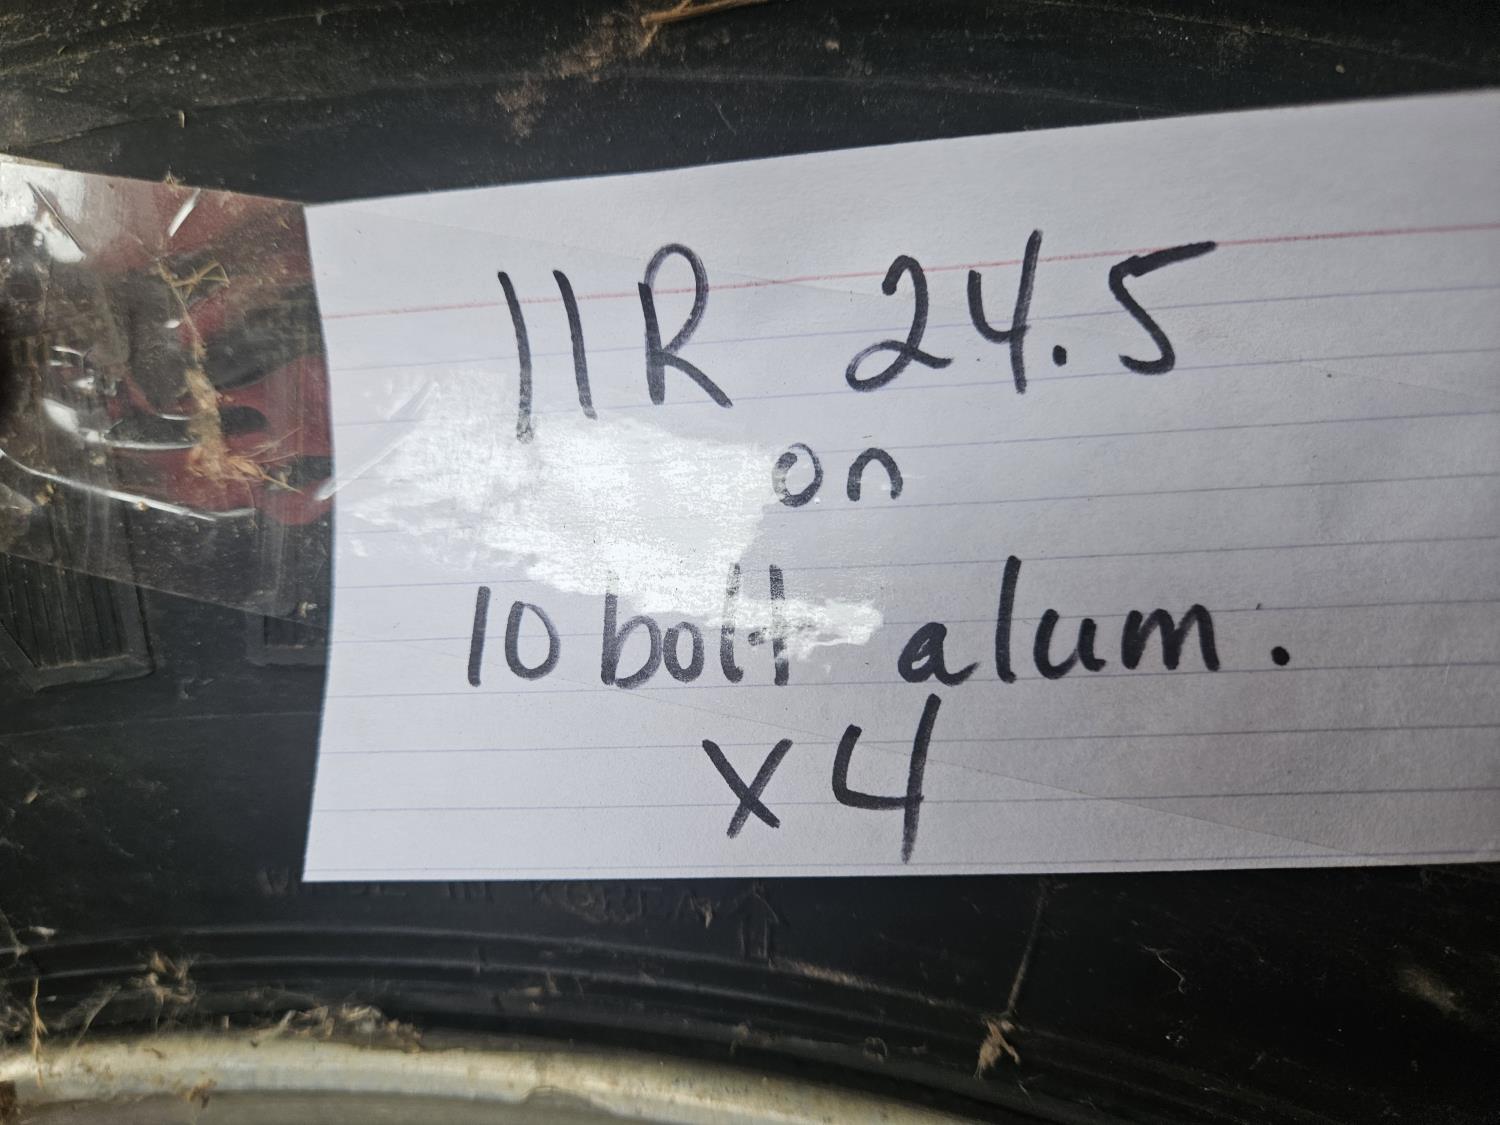 11R 24.5
on
10 bolt alum.
x4